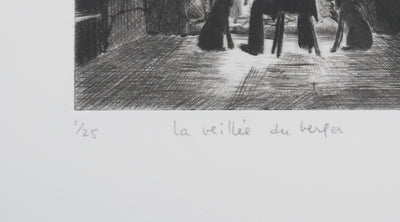 1/25 La veillée du berger